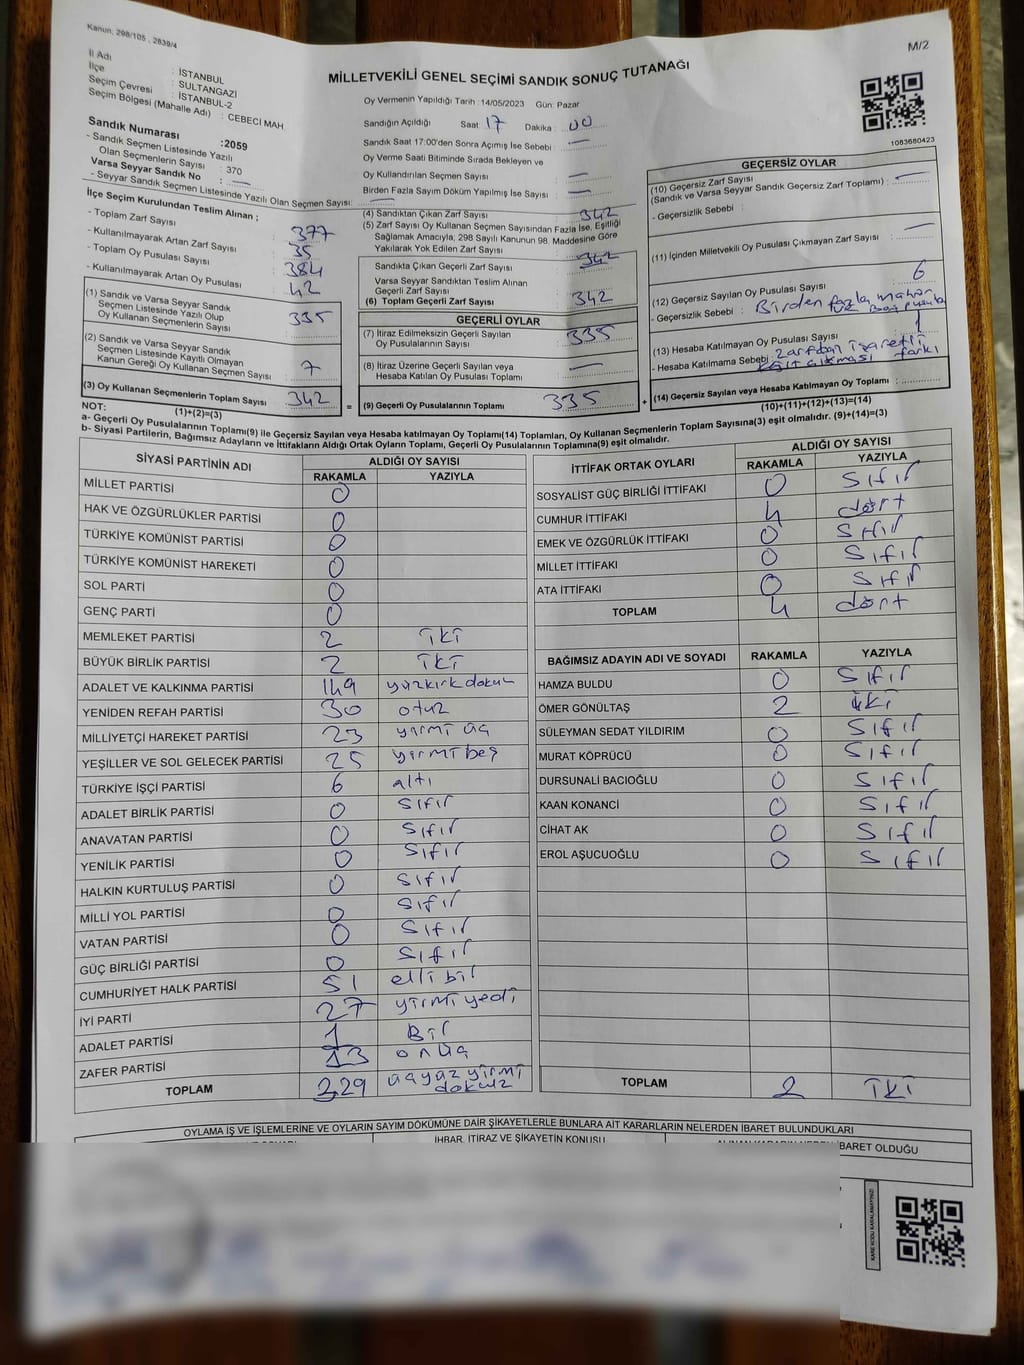 Kanun: 298/105 , 2839/4
M/2
MİLLETVEKİLİ GENEL SEÇİMİ SANDIK SONUÇ TUTANAĞI
İl Adı : İSTANBUL
İlçe : SULTANGAZI
Seçim Çevresi : İSTANBUL-2
Seçim Bölgesi (Mahalle Adı) : CEBECİ MAH
Sandık Numarası :2059
- Sandık Seçmen Listesinde Yazılı
Olan Seçmenlerin Sayısı : 370
Varsa Seyyar Sandık No : —
- Seyyar Sandık Seçmen Listesinde Yazılı Olan Seçmen Sayısı: —
İlçe Seçim Kurulundan Teslim Alınan ;
- Toplam Zarf Sayısı : 377
- Kullanılmayarak Artan Zarf Sayısı : 35
- Toplam Oy Pusulası Sayısı : 384
- Kullanılmayarak Artan Oy Pusulası : 42
(1) Sandık ve Varsa Seyyar Sandık
Seçmen Listesinde Yazılı Olup
Oy Kullanan Seçmenlerin Sayısı : 335
(2) Sandık ve Varsa Seyyar Sandık
Seçmen Listesinde Kayıtlı Olmayan
Kanun Gereği Oy Kullanan Seçmen Sayısı : 7
(3) Oy Kullanan Seçmenlerin Toplam Sayısı : 342
(1)+(2)=(3)
Oy Vermenin Yapıldığı Tarih : 14/05/2023 Gün: Pazar
Sandığın Açıldığı Saat : 17 Dakika : 00
Sandık Saat 17:00'den Sonra Açımış İse Sebebi : —
Oy Verme Saati Bitiminde Sırada Bekleyen ve
Oy Kullandırılan Seçmen Sayısı : —
Birden Fazla Sayım Döküm Yapılmış İse Sayısı : —
(4) Sandıktan Çıkan Zarf Sayısı : 342
(5) Zarf Sayısı Oy Kullanan Seçmen Sayısından Fazla İse, Eşitliği
Sağlamak Amacıyla, 298 Sayılı Kanunun 98. Maddesine Göre
Yakılarak Yok Edilen Zarf Sayısı : —
Sandıkta Çıkan Geçerli Zarf Sayısı : 342
Varsa Seyyar Sandıktan Teslim Alınan
Geçerli Zarf Sayısı
(6) Toplam Geçerli Zarf Sayısı : 342
GEÇERLİ OYLAR
(7) İtiraz Edilmeksizin Geçerli Sayılan
Oy Pusulalarının Sayısı : 335
(8) İtiraz Üzerine Geçerli Sayılan veya
Hesaba Katılan Oy Pusulası Toplamı : —
= (9) Geçerli Oy Pusulalarının Toplamı 335 +
1083680423
GEÇERSİZ OYLAR
(10) Geçersiz Zarf Sayısı
(Sandık ve Varsa Seyyar Sandık Geçersiz Zarf Toplamı) : —
- Geçersizlik Sebebi :
(11) İçinden Milletvekili Oy Pusulası Çıkmayan Zarf Sayısı : —
(12) Geçersiz Sayılan Oy Pusulası Sayısı : 6
- Geçersizlik Sebebi : Birden fazla mühür
(13) Hesaba Katılmayan Oy Pusulası Sayısı : 1
- Hesaba Katılmama Sebebi : Zarftan işaretli farklı
kağıt çıkması
(14) Geçersiz Sayılan veya Hesaba Katılmayan Oy Toplamı :
(10)+(11)+(12)+(13)=(14)
NOT:
a- Geçerli Oy Pusulalarının Toplamı(9) ile Geçersiz Sayılan veya Hesaba katılmayan Oy Toplamı(14) Toplamları, Oy Kullanan Seçmenlerin Toplam Sayısına(3) eşit olmalıdır. (9)+(14)=(3)
b- Siyasi Partilerin, Bağımsız Adayların ve İttifakların Aldığı Ortak Oyların Toplamı, Geçerli Oy Pusulalarının Toplamına(9) eşit olmalıdır.
SİYASİ PARTİNİN ADI ALDIĞI OY SAYISI
RAKAMLA YAZIYLA
MİLLET PARTİSİ 0
HAK VE ÖZGÜRLÜKLER PARTİSİ 0
TÜRKİYE KOMÜNİST PARTİSİ 0
TÜRKİYE KOMÜNİST HAREKETİ 0
SOL PARTİ 0
GENÇ PARTİ 0
MEMLEKET PARTİSİ 2 iki
BÜYÜK BİRLİK PARTİSİ 2 iki
ADALET VE KALKINMA PARTİSİ 149 yüzkırkdokuz
YENİDEN REFAH PARTİSİ 30 otuz
MİLLİYETÇİ HAREKET PARTİSİ 23 yirmi üç
YEŞİLLER VE SOL GELECEK PARTİSİ 25 yirmi beş
TÜRKİYE İŞÇİ PARTİSİ 6 altı
ADALET BİRLİK PARTİSİ 0 sıfır
ANAVATAN PARTİSİ 0 sıfır
YENİLİK PARTİSİ 0 sıfır
HALKIN KURTULUŞ PARTİSİ 0 sıfır
MİLLİ YOL PARTİSİ 0 sıfır
VATAN PARTİSİ 0 sıfır
GÜÇ BİRLİĞİ PARTİSİ 0 sıfır
CUMHURİYET HALK PARTİSİ 51 elli bir
İYİ PARTİ 27 yirmi yedi
ADALET PARTİSİ 1 Bir
ZAFER PARTİSİ 13 onüç
TOPLAM 329 üçyüz yirmi
dokuz
İTTİFAK ORTAK OYLARI ALDIĞI OY SAYISI
RAKAMLA YAZIYLA
SOSYALİST GÜÇ BİRLİĞİ İTTİFAKI 0 sıfır
CUMHUR İTTİFAKI 4 dört
EMEK VE ÖZGÜRLÜK İTTİFAKI 0 sıfır
MİLLET İTTİFAKI 0 sıfır
ATA İTTİFAKI 0 sıfır
TOPLAM 4 dört
BAĞIMSIZ ADAYIN ADI VE SOYADI RAKAMLA YAZIYLA
HAMZA BULDU 0 sıfır
ÖMER GÖNÜLTAŞ 2 iki
SÜLEYMAN SEDAT YILDIRIM 0 sıfır
MURAT KÖPRÜCÜ 0 sıfır
DURSUNALİ BACIOĞLU 0 sıfır
KAAN KONANCİ 0 sıfır
CİHAT AK 0 sıfır
EROL AŞUCUOĞLU 0 sıfır
TOPLAM 2 iki
OYLAMA İŞ VE İŞLEMLERİNE VE OYLARIN SAYIM DÖKÜMÜNE DAİR ŞİKAYETLERLE BUNLARA AİT KARARLARIN NELERDEN İBARET BULUNDUKLARI
İHBAR, İTİRAZ VE ŞİKAYETİN KONUSU
İBARET OLDUĞU
KARE KODU KARALAMAYINIZ!